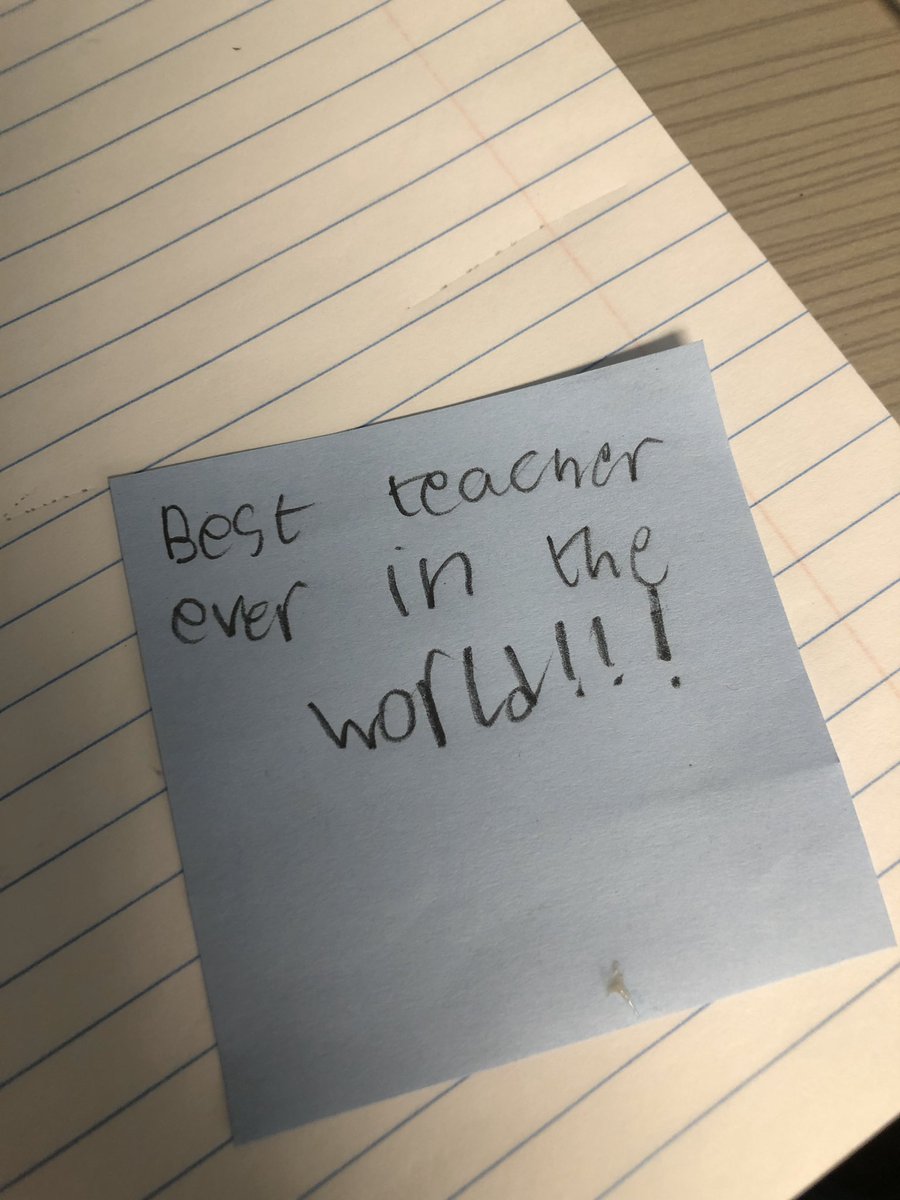 Best teacher
ever in the
world!!!